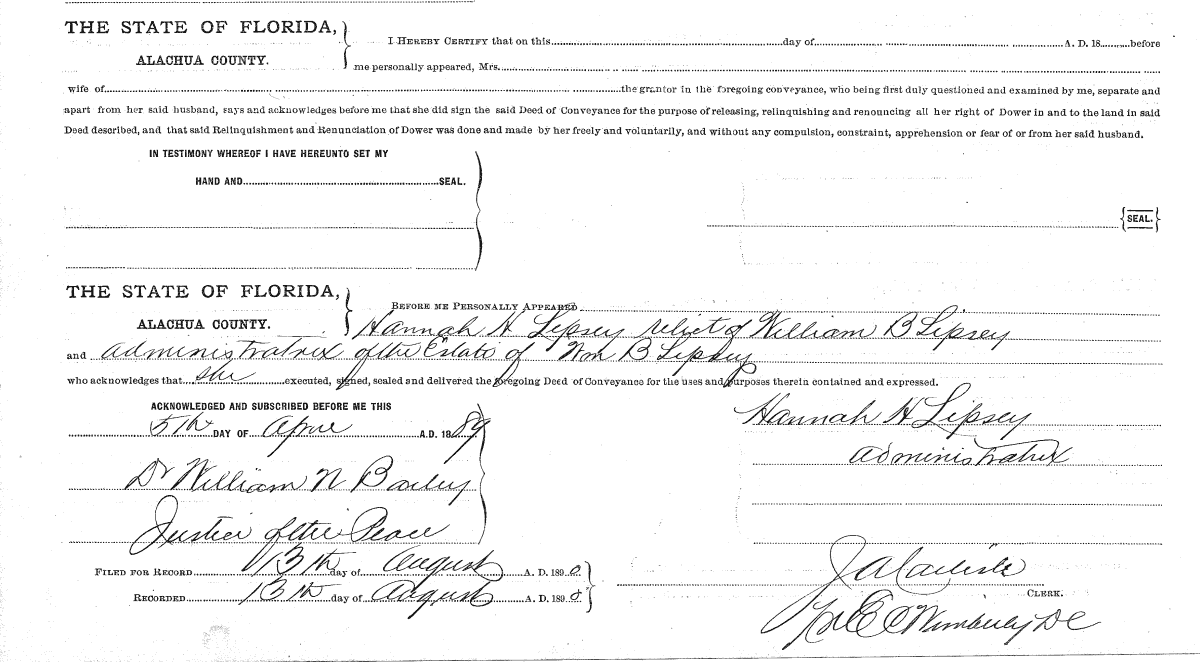 THE STATE OF FLORIDA,
ALACHUA COUNTY.
I HEREBY CERTIFY that on this day of A. D. 18 before
me personally appeared, Mrs.
wife of the grantor in the foregoing conveyance, who being first duly questioned and examined by me, separate and
apart from her said husband, says and acknowledges before me that she did sign the said Deed of Conveyance for the purpose of releasing, relinquishing and renouncing all her right of Dower in and to the land in said
Deed described, and that said Relinquishment and Renunciation of Dower was done and made by her freely and voluntarily, and without any compulsion, constraint, apprehension or fear of or from her said husband.
IN TESTIMONY WHEREOF I HAVE HEREUNTO SET MY
HAND AND SEAL.
SEAL.
THE STATE OF FLORIDA,
ALACHUA COUNTY.
BEFORE ME PERSONALLY APPEARED
Hannah H Lipsey relict of William B Lipsey
and administratrix of the Estate of Wm B Lipsey
who acknowledges that she executed, signed, sealed and delivered the foregoing Deed of Conveyance for the uses and purposes therein contained and expressed.
ACKNOWLEDGED AND SUBSCRIBED BEFORE ME THIS
5th DAY OF April A.D. 1889
Dr William N Bailey
Justice of the Peace
Hannah H Lipsey
administratrix
FILED FOR RECORD 13th day of August A. D. 1890
RECORDED 13th day of August A. D. 1890
J A Carlisle
CLERK.
E C Wimberly DC